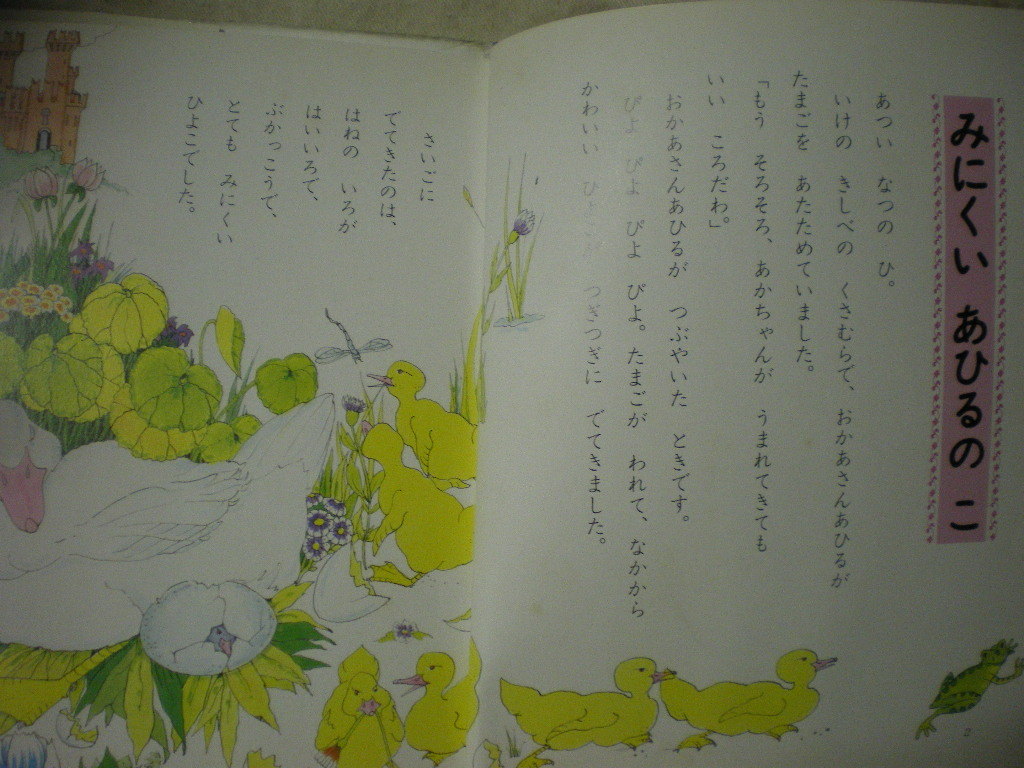 みにくい あひるの こ
あつい なつの ひ。
いけの きしべの くさむらで、 おかあさんあひるが
たまごを あたためていました。
「もう そろそろ、あかちゃんが うまれてきても
いい ころだわ。」
おかあさんあひるが つぶやいた ときです。
ぴよ ぴよ ぴよ ぴよ。たまごが われて、なかから
かわいい ひよこが つぎつぎに でてきました。
さいごに
でてきたのは、
はねの いろが
はいいろで、
ぶかっこうで、
とても みにくい
ひよこでした。